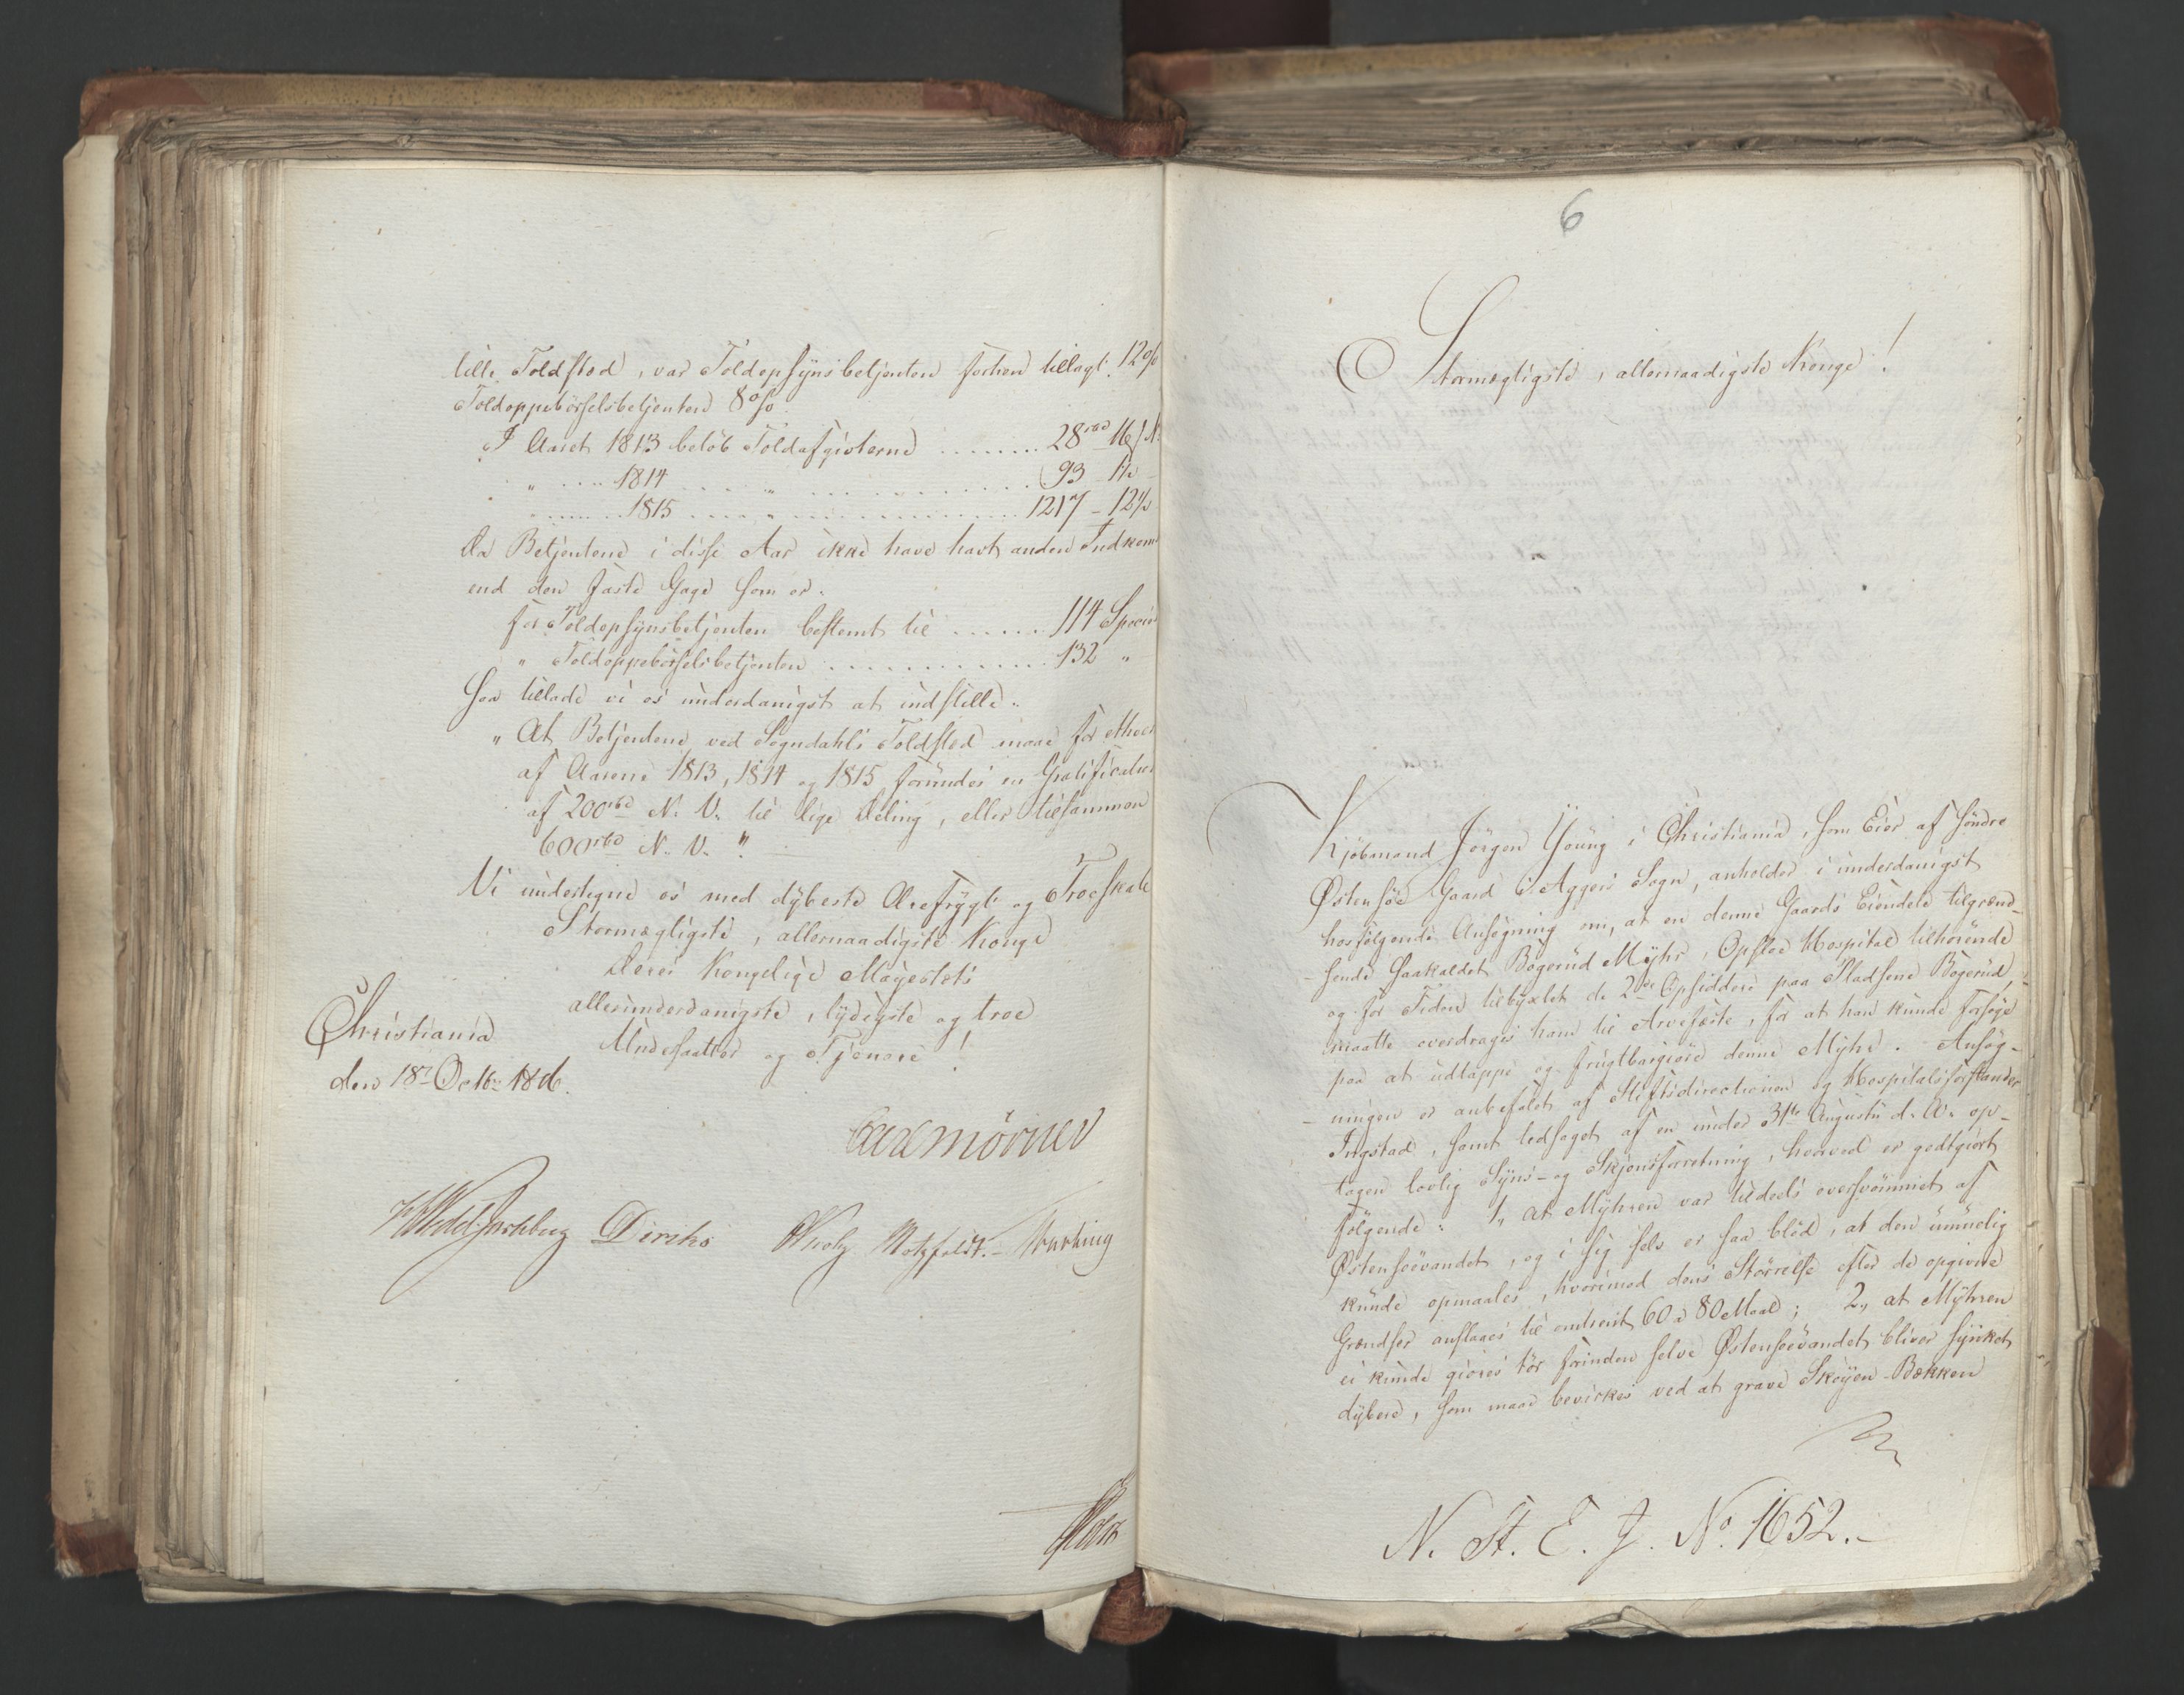 lille Toldsted, var Toldopsynsbetjenten forhen tillagt 12 %
Toldoppebörselsbetjenten 8 %.
I Aaret 1813 belöb Toldafgivterne ........ 28 rbd
" .... 1814 . . . . " . . . . . . . . . . 93
....... 1815 . . . . " . . . . . . . . . . 1217 - 12
Da Betjentene i disse Aar ikke have havt anden Indkomst
end den faste Gage som er:
for Toldopsynsbetjenten bestemt til ...... 114 Specier
" Toldoppebörselsbetjenten ............ 132 "
saa tillade vi os underdanigst at indstille:
" At Betjentene ved Sogndahls Toldsted maae for ethvert
af Aarene 1813, 1814 og 1815 forundes en Gratification
af 200 rbd N. V. til lige Deling, eller tilsammen
600 rbd N. V. "
Vi undertegne os med dybeste Ærefrygt og Troeskab
Stormægtigste, allernaadigste Konge
Deres Kongelige Majestæts
allerunderdanigste, lydigste og troe
Undersaatter og Tjenere!
Christiania
den 18de Octbr 1816.
Carl Mörner
HWedel Jarlsberg Diriks Motzfeldt.
6
Stormægtigste, allernaadigste Konge!
Kjöbmand Jörgen Young i Christiania, som Eier af söndre
Østensöe Gaard i Aggers Sogn, anholder i underdanigst
hosfølgende Ansøgning om, at en denne Gaards Eiendele tilgrænd-
-sende saakaldet Bøgerud Myhr, Opsloe Hospital tilhørende
og for Tiden tilbyxlet de 2de Opsiddere paa Pladsene Bøgerud,
maatte overdrages ham til Arvefæste, for at han kunde forsøge
paa at udtappe og frugtbargiøre denne Myhr. Ansøg-
-ningen er anbefalet af Stiftsdirectionen og Hospitalsforstander
Ingstad, samt ledsaget af en under 31te Augusti d. A. op-
tagen lovlig Syns- og Skjønsforretning, hvorved er godtgiort
følgende: 1, at Myhren var tildeels oversvömmet af
Østensöevandet, og i sig selv er saa blød, at den umuelig
kunde opmaales, hvorimod dens Størrelse efter de opgivne
Grændser anslaaes til omtrent 60 a 80 Maal; 2, at Myhren
ei kunde giøres tör forinden selve Østensöevandet bliver synket
dybere, som maae bevirkes ved at grave Skøyen-Bækken
N. St. E. J. No. 1652.-